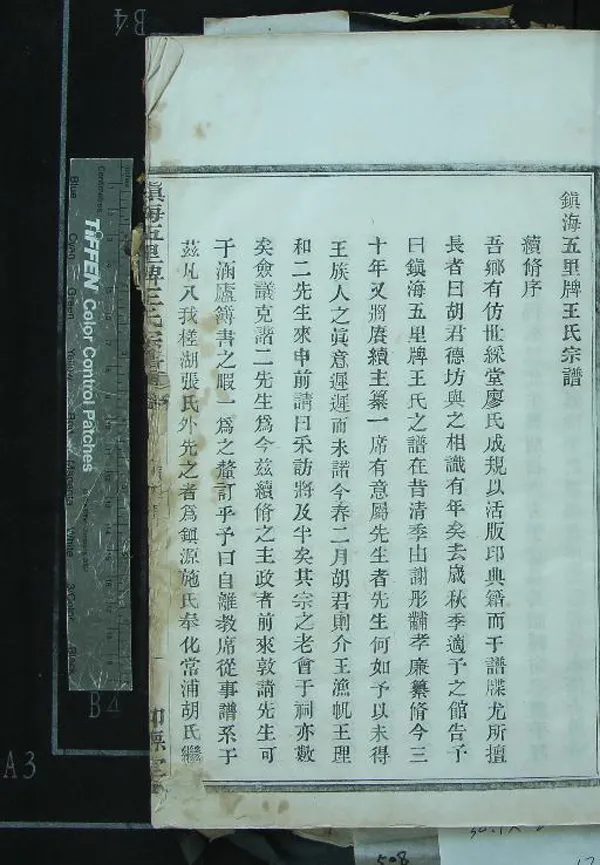 鎮海五里牌王氏宗譜
續脩序
吾鄉有仿世綵堂廖氏成規以活版印典籍而于譜牒尤所擅
長者曰胡君德坊與之相識有年矣去歲秋季適予之館告予
曰鎮海五里牌王氏之譜在昔清季由謝彤黼孝廉纂脩今三
十年又將賡續主纂一席有意屬先生者先生何如予以未得
王族人之眞意遲遲而未諾今春二月胡君則介王漁帆王理
和二先生來申前請曰采訪將及半矣其宗之老會于祠亦數
矣僉議克諧二先生爲今茲續脩之主政者前來敦請先生可
于涵廬簿書之暇一爲之釐訂乎予曰自離教席從事譜系于
茲凡八我槎湖張氏外先之者爲鎮源施氏奉化常浦胡氏繼
鎮海五里牌王氏宗譜
B4
TIFFEN Color Control Patches
Centimetres
Blue
Cyan
Green
Yellow
Red
Magenta
White
3/Color
Black
B4
A3
508